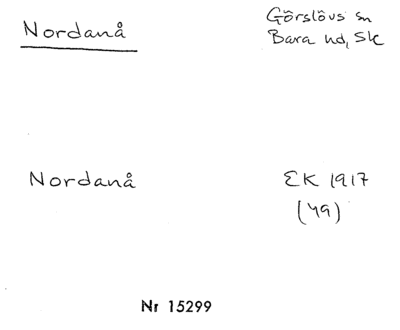 Nordanå
Görslövs sn
Bara hd, Sk
Nordanå
EK 1917
(49)
Nr 15299